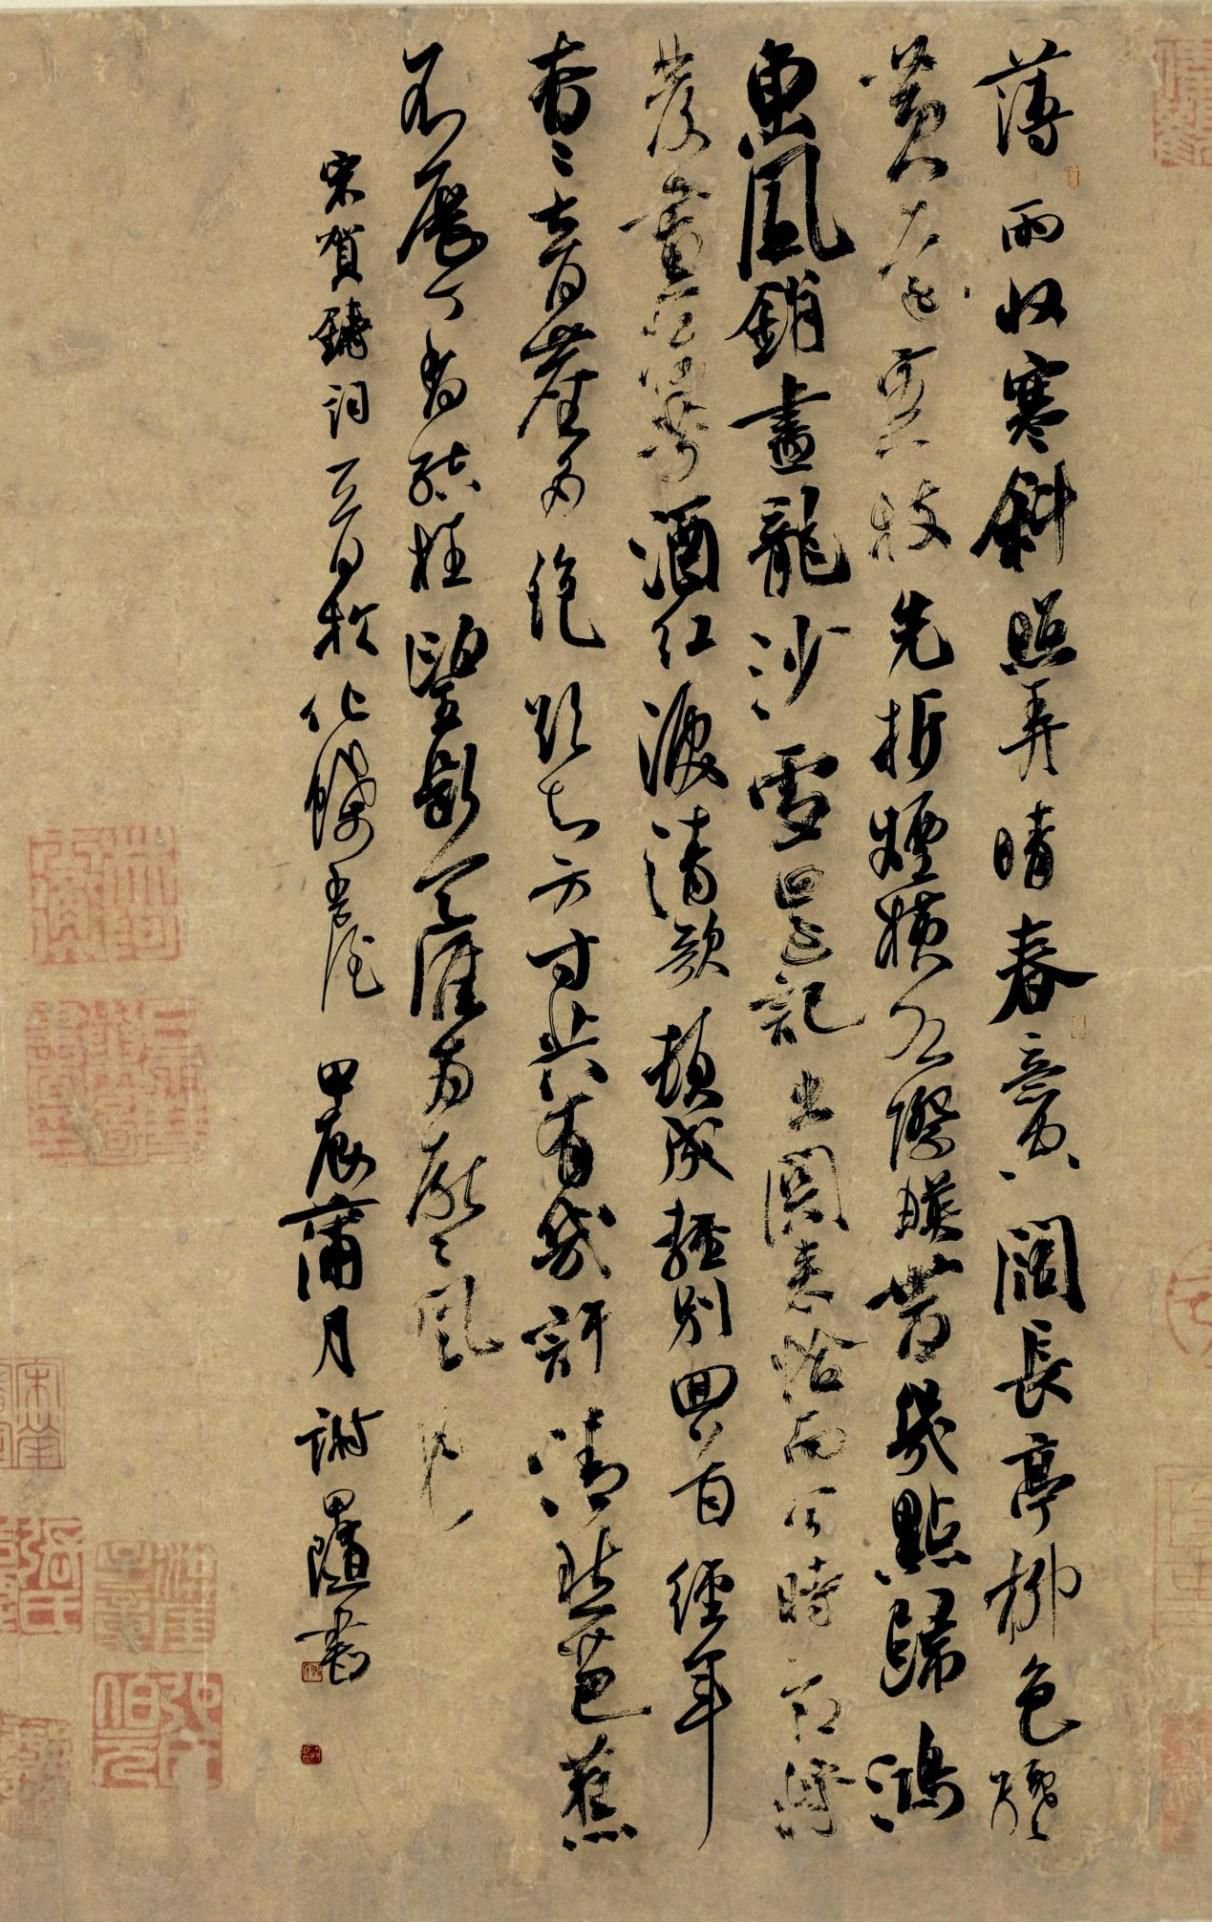 薄雨收寒斜照弄晴春意空闊長亭柳色纔
黃遠客一枝先折煙橫水際映帶幾點歸鴻
東風銷盡龍沙雪還記出關來恰而今時節將
發畫樓芳酒紅淚清歌頓成輕別回首經年
杳〻音塵都絕欲知方寸共有幾許清愁芭蕉
不展丁香結枉望斷天涯兩厭〻風月
宋賀鑄詞一首於化蝶書屋 甲辰蒲月 謝書